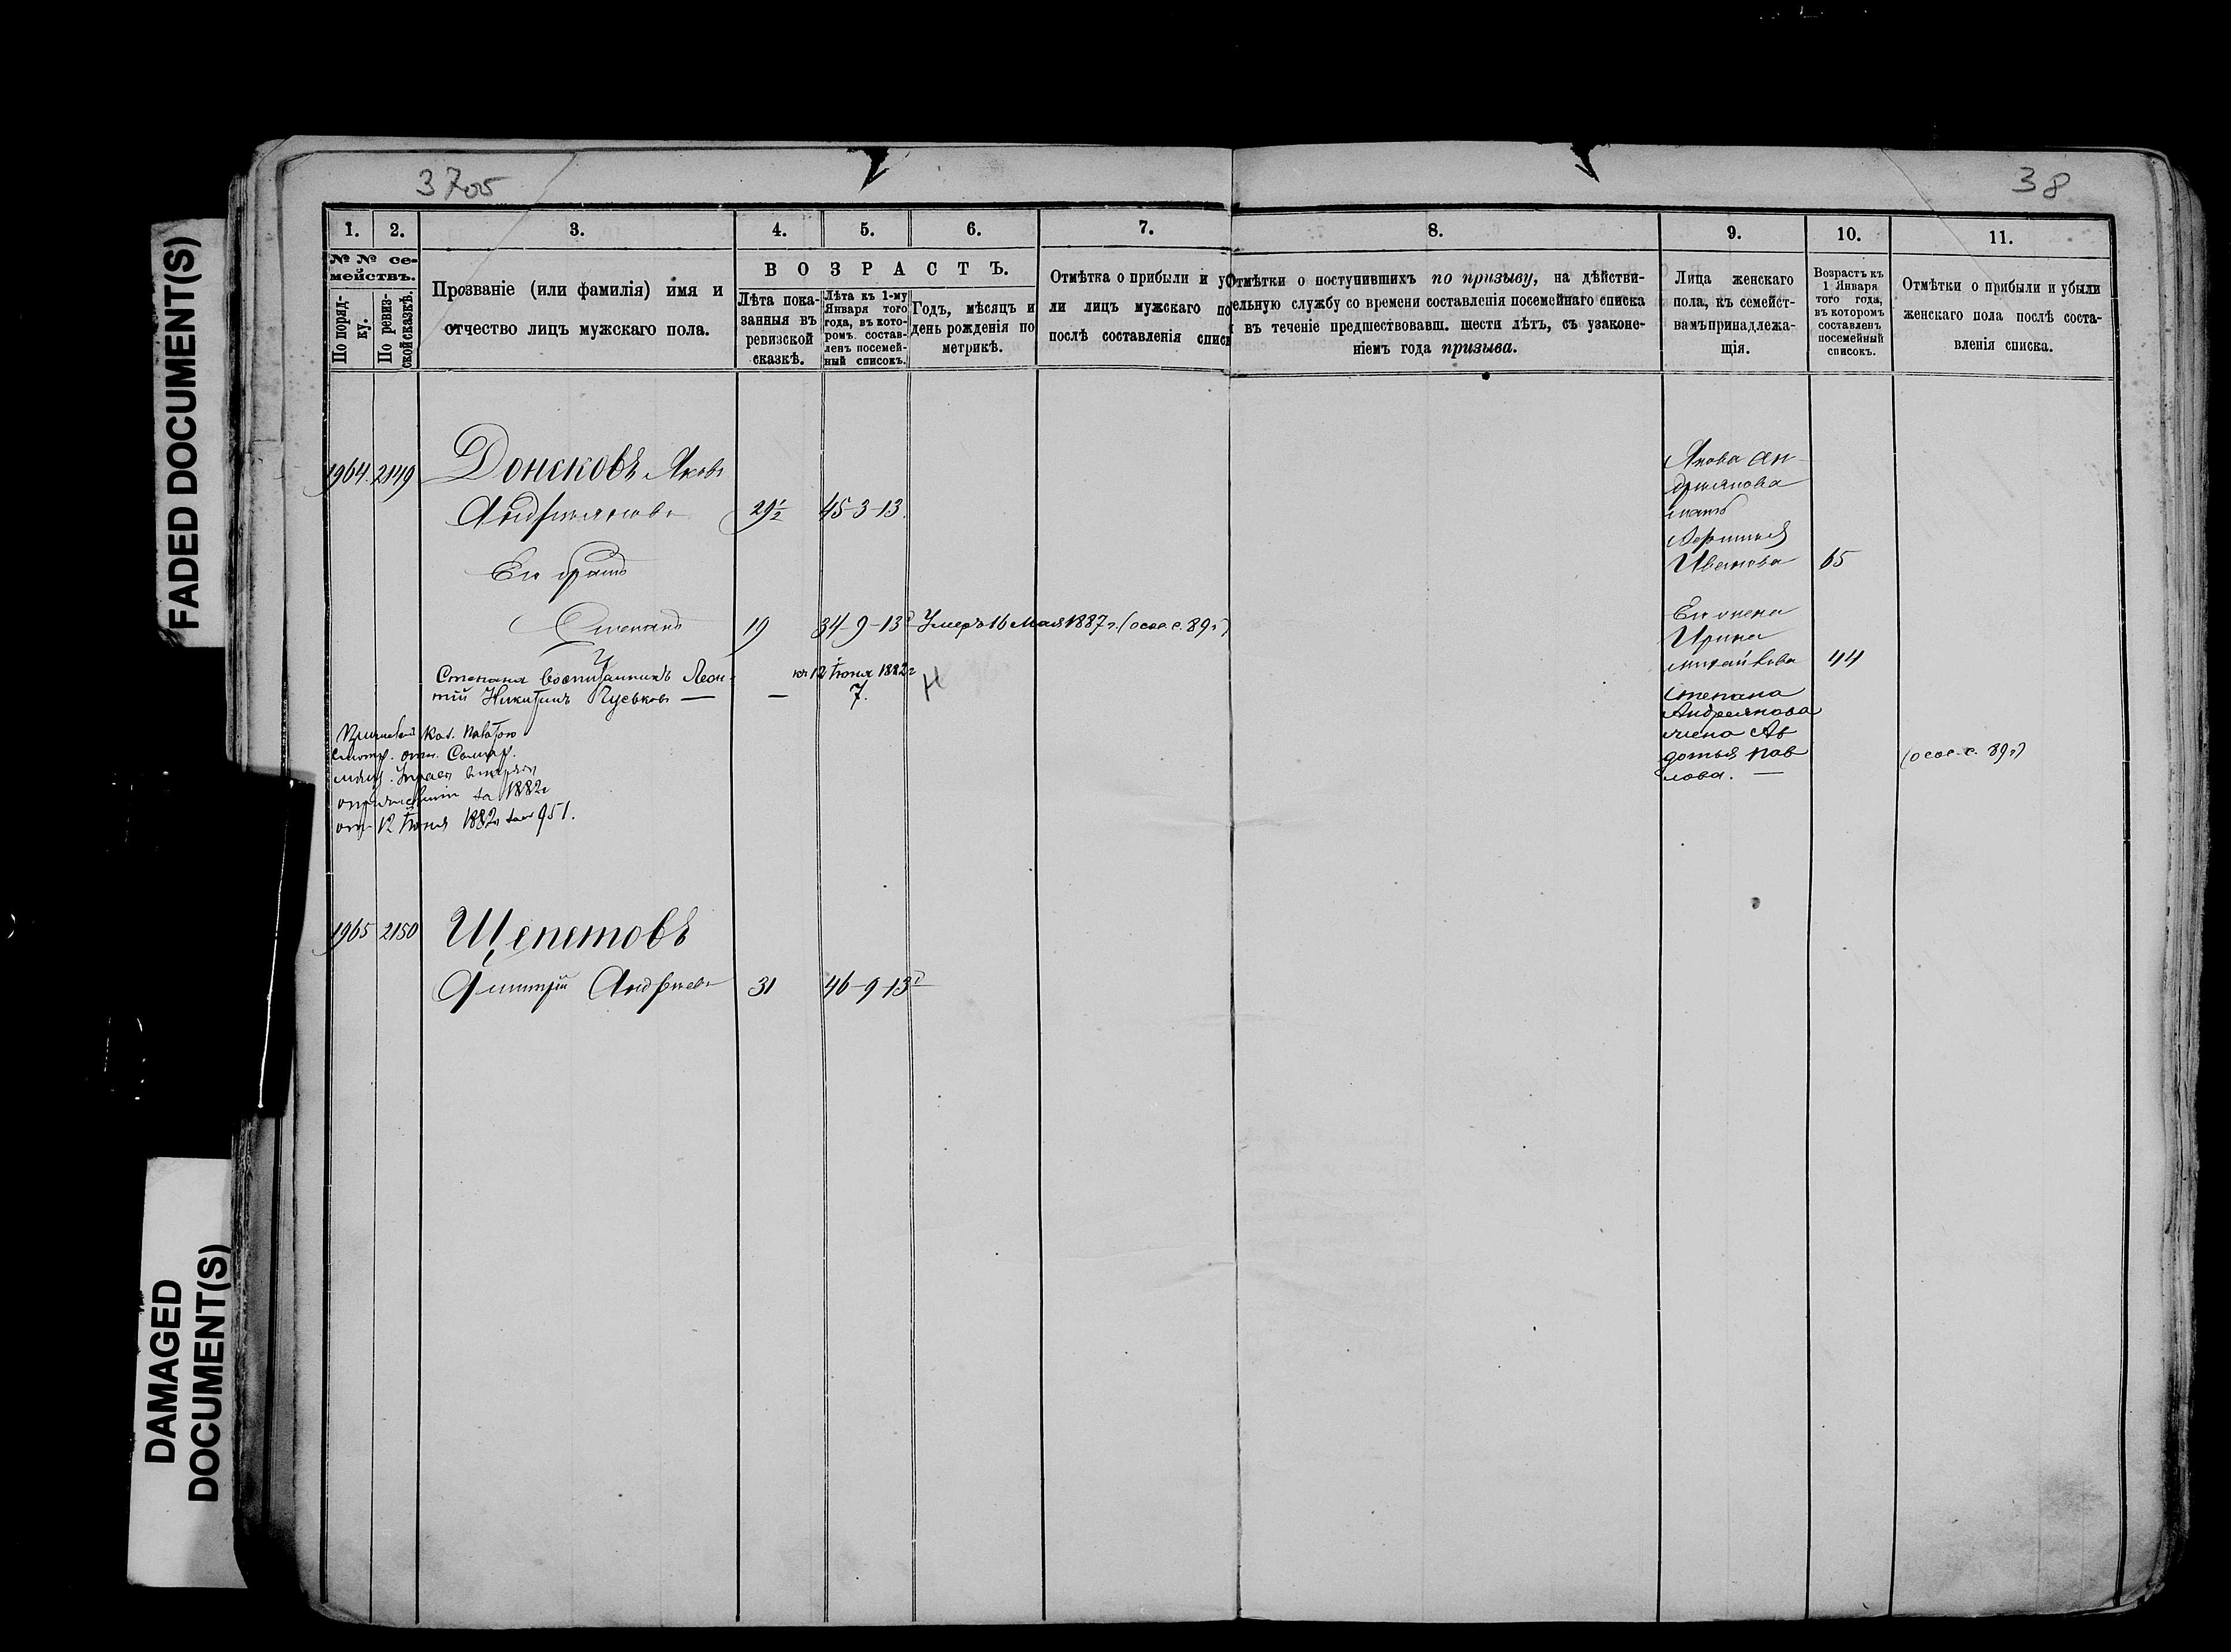 FADED DOCUMENT(S)
DAMAGED
DOCUMENT(S)
3705
38
1. 2. 3. 4. 5. 6. 7. 8. 9. 10. 11.
№ № се-
мействъ.
По поряд-
ку.
По ревиз-
ской сказкѣ.
Прозваніе (или фамилія) имя и
отчество лицъ мужскаго пола.
ВОЗРАСТЪ.
Лѣта пока-
занныя въ
ревизской
сказкѣ.
Лѣта къ 1-му
Января того
года, въ кото-
ромъ состав-
ленъ посемей-
ный списокъ.
Годъ, мѣсяцъ и
день рожденія по
метрикѣ.
Отмѣтка о прибыли и у
ли лицъ мужскаго по
послѣ составленія списк
Отмѣтки о поступившихъ по призыву, на дѣйстви-
ельную службу со времени составленія посемейнаго списка
въ теченіе предшествовавш. шести лѣтъ, съ узаконе-
ніемъ года призыва.
Лица женскаго
пола, къ семейст-
вамъ принадлежа-
щія.
Возрастъ къ
1 Января
того года,
въ которомъ
составленъ
посемейный
списокъ.
Отмѣтки о прибыли и убыли
женскаго пола послѣ соста-
вленія списка.
1964. 2149 Донсковъ Яковъ
Андрияновъ 29½ 45-3-13.
Его братъ
Степанъ 19 34-9-13 Умеръ 16 Мая 1887 г. (осое. с. 89 г)
Степана воспитанникъ Леон-
тій Никитинъ Гуськовъ — —
къ 12 Іюня 1882 г
7.
Н
Каз. Палатою
отъ 12 Іюня 1882 г за № 951.
Якова Ан-
дриянова
мать
Иванова 65
Его жена
Ирина
Михайлова 44
Степана
Андреянова
жена Ав
дотья Пав
лова. —
(осое. с. 89 г)
1965 2150 Щепетовъ
Дмитрій Андреевъ 31 46-9-13